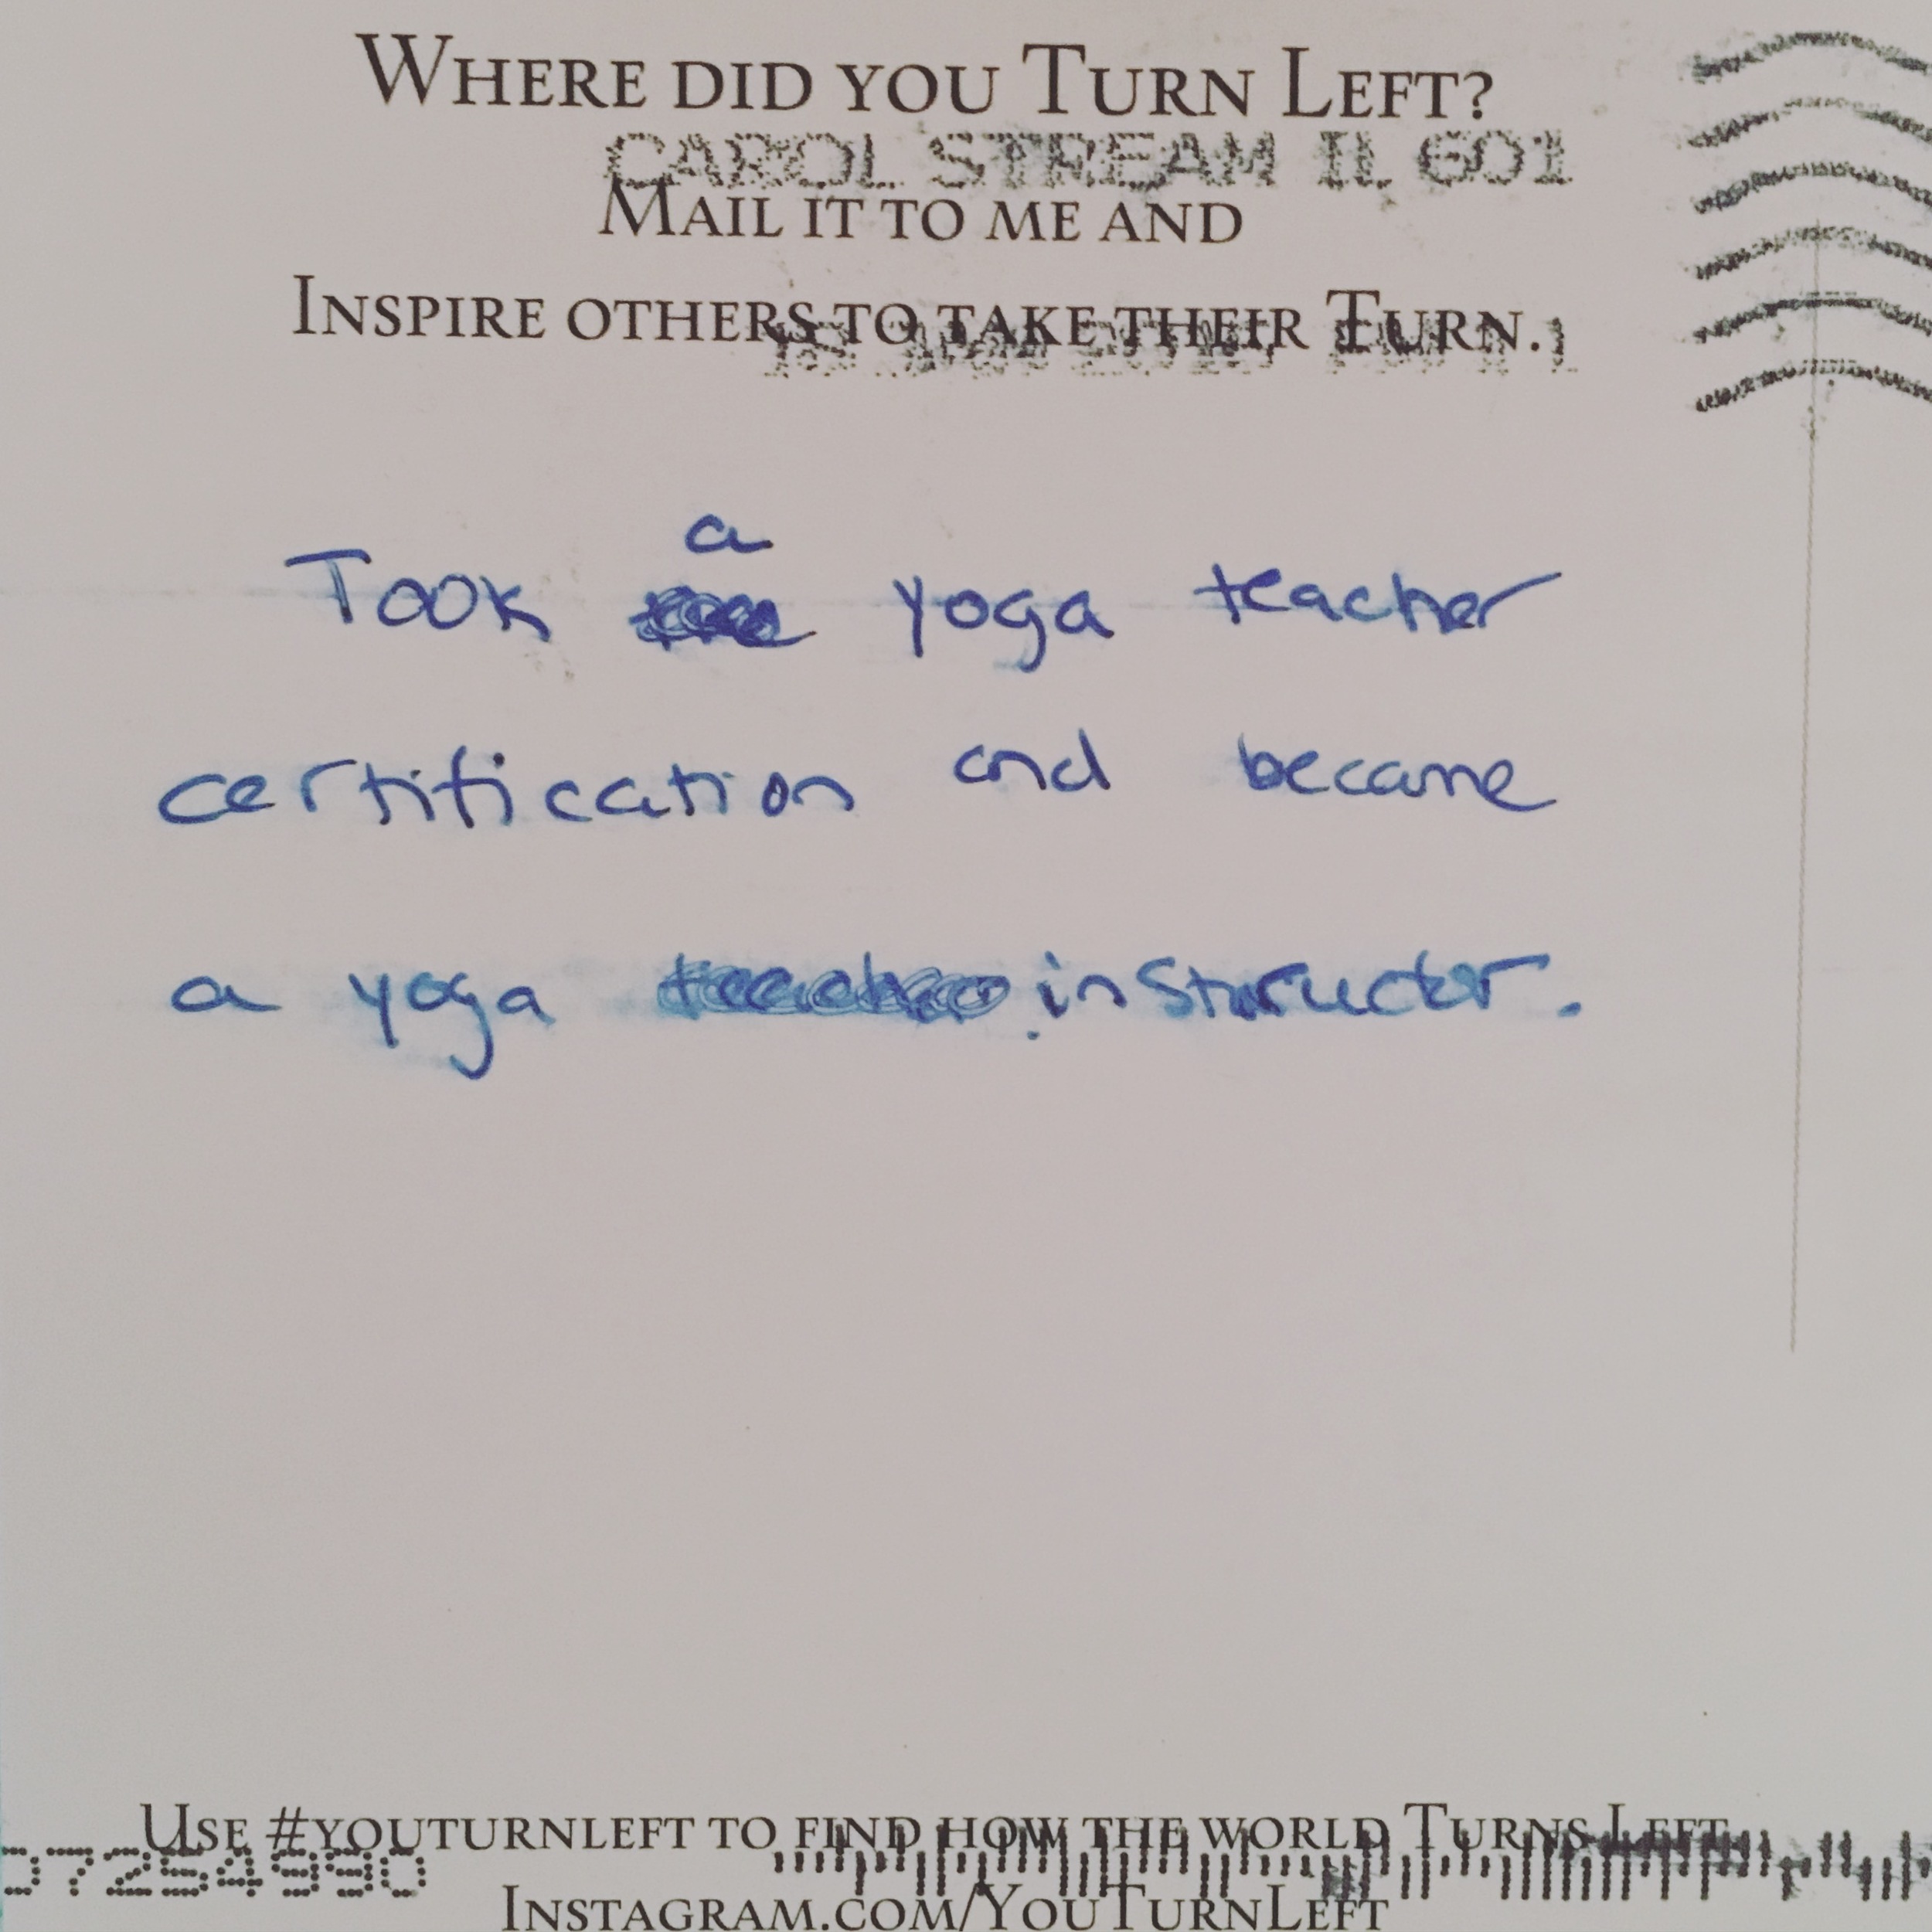 WHERE DID YOU TURN LEFT?
CAROL STREAM IL 601
MAIL IT TO ME AND
INSPIRE OTHERS TO TAKE THEIR TURN.
a
Took yoga teacher
certification and became
a yoga instructor.
USE #YOUTURNLEFT TO FIND HOW THE WORLD TURNS LEFT
07254990
INSTAGRAM.COM/YOUTURNLEFT